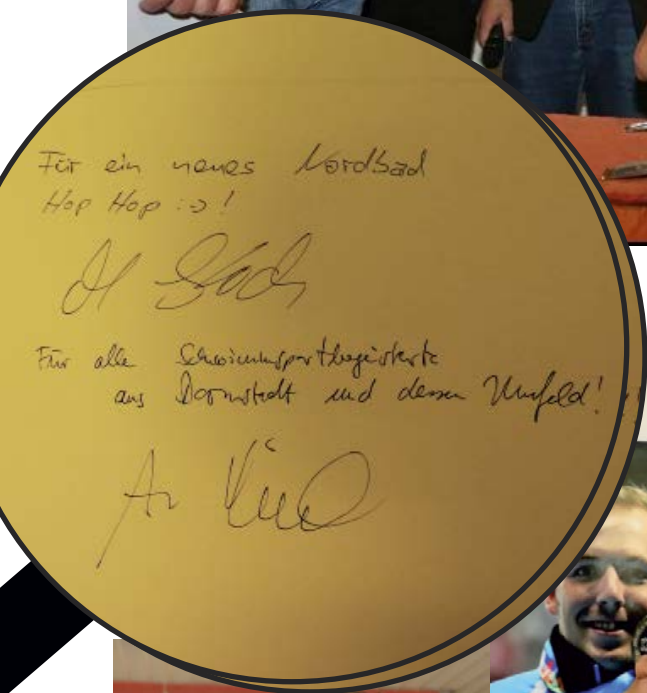 Für ein neues Nordbad
Hop Hop :-)!
Für alle Schwimmsportbegeisterte
aus Darmstadt und dessen Umfeld!